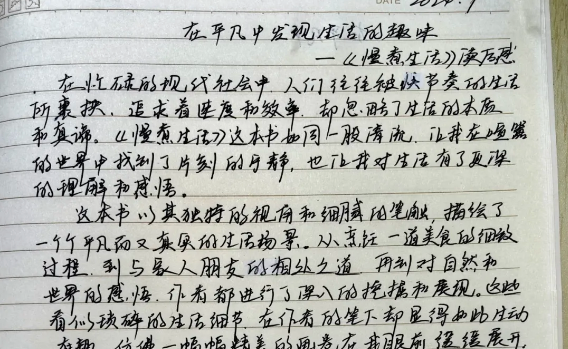 DATE 2024.9
在平凡中发现生活的趣味
——《慢煮生活》读后感
在忙碌的现代社会中，人们往往被快节奏的生活
所裹挟，追求着速度和效率，却忽略了生活的本质
和真谛。《慢煮生活》这本书如同一股清流，让我在喧嚣
的世界中找到了片刻的宁静，也让我对生活有了更深
的理解和感悟。
这本书以其独特的视角和细腻的笔触，描绘了
一个个平凡而又真实的生活场景。从烹饪一道美食的细致
过程，到与家人朋友的相处之道，再到对自然和
世界的感悟，作者都进行了深入的挖掘和展现。这些
看似琐碎的生活细节，在作者的笔下却显得如此生动
有趣，仿佛一幅幅精美的画卷在我眼前缓缓展开